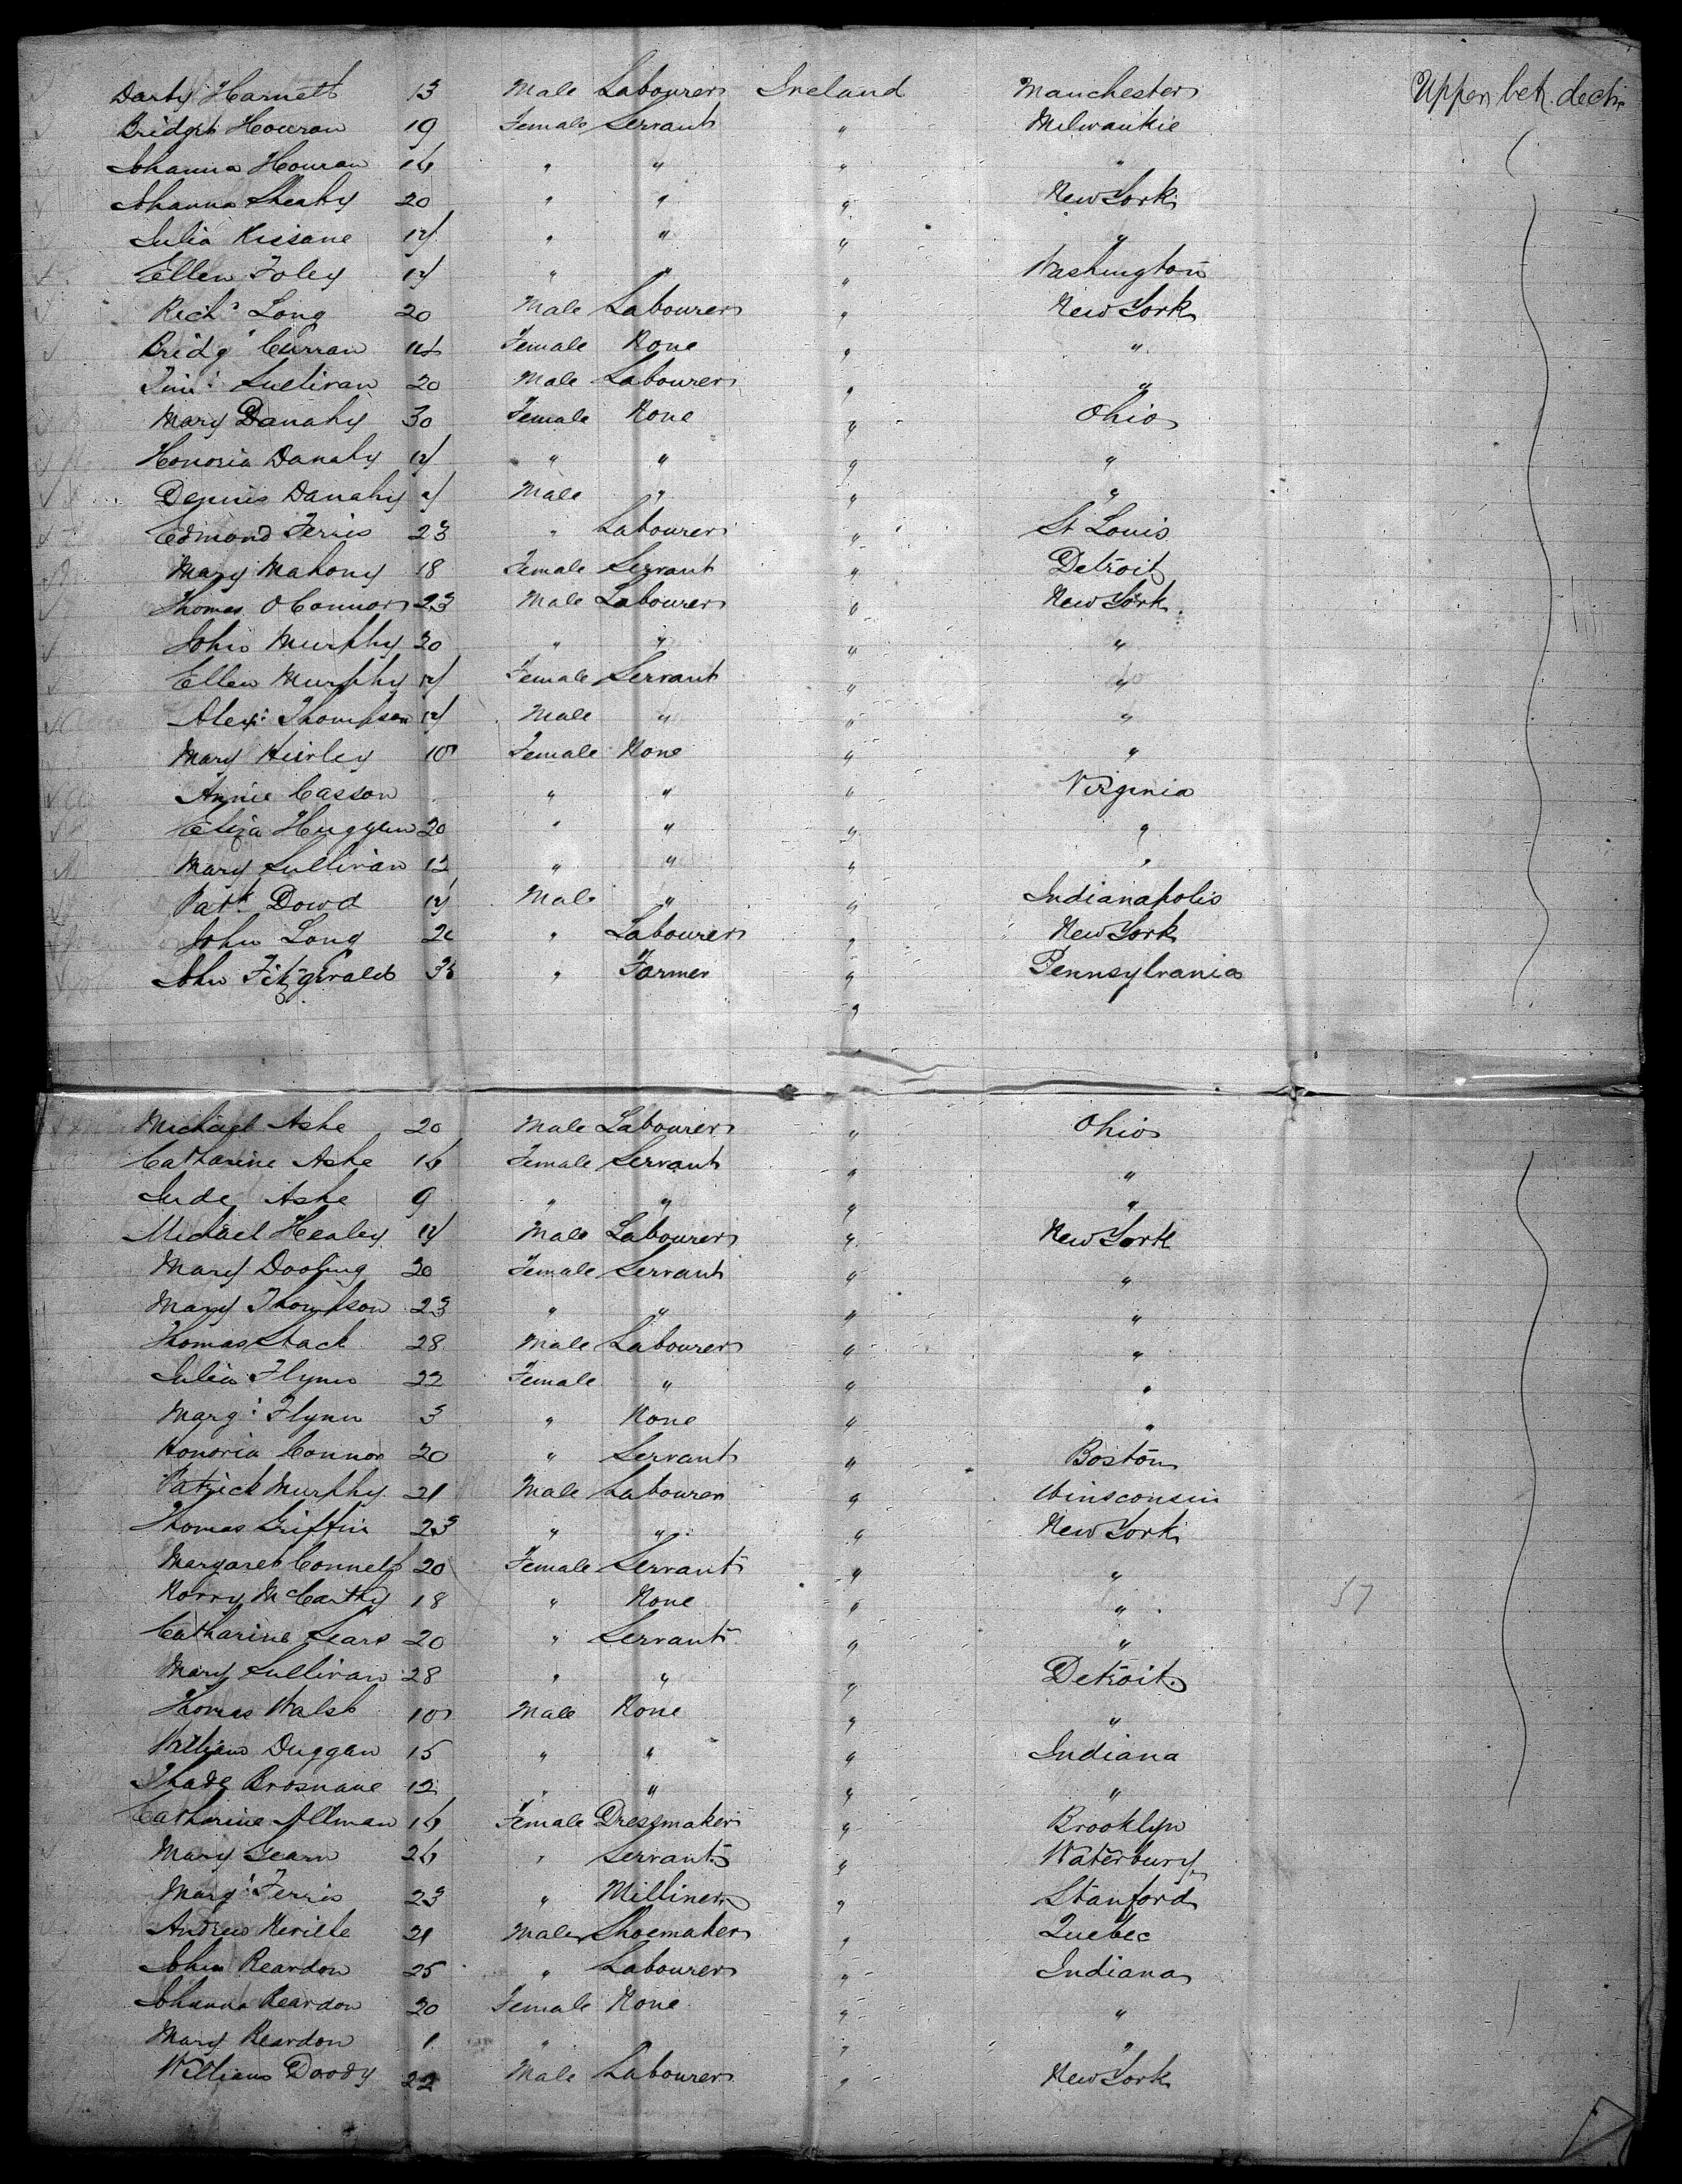 Darby Harnett 13 Male Labourer Ireland Manchester Upper bet. deck
Bridget Houran 19 Female Servant " Milwaukie
Johanna Houran 16 " " " "
Johanna Sheahy 20 " " " New York
Julia Kissane 17 " " " "
Ellen Foley 17 " " " Washington
Richd Long 20 Male Labourer " New York
Bridgt Curran Female None " "
Timy Sullivan 20 Male Labourer " "
Mary Danahy 30 Female None " Ohio
Honoria Danahy " " " "
Dennis Danahy Male " " "
Edmond Ferris 23 " Labourer " St Louis
Mary Mahony 18 Female Servant " Detroit
Thomas O Connor 23 Male Labourer " New York
John Murphy 20 " " " "
Ellen Murphy 17 Female Servant " "
Alexr Thompson 17 Male " " "
Mary Hurley 10 Female None " "
Annie Casson " " " Virginia
Eliza Huggan 20 " " " "
Mary Sullivan 12 " " " "
Patk Dowd 17 Male " " Indianapolis
John Long " Labourer " New York
John Fitzgerald " Farmer " Pennsylvania
"
Michael Ashe 20 Male Labourer " Ohio
Catharine Ashe 16 Female Servant " "
Judy Ashe 9 " " " "
Michael Healey 17 Male Labourer " New York
Mary Dooling 20 Female Servant " "
Mary Thompson 23 " " " "
Thomas Stack 28 Male Labourer " "
Julia Flynn 22 Female " " "
Margt Flynn 3 " None " "
Honoria Connor 20 " Servant " Boston
Patrick Murphy 21 Male Labourer " Winsconsin
Thomas Griffin 23 " " " New York
Margaret Connell 20 Female Servant " "
Norry McCarthy 18 " None " " 57
Catharine Sears 20 " Servant " "
Mary Sullivan 28 " " " Detroit
Thomas Walsh 10 Male None " "
William Duggan 15 " " " Indiana
Thade Brosnane 12 " " " "
Catharine Allman 16 Female Dressmaker " Brooklyn
Mary Gearn 26 " Servant " Waterbury
Margt Ferris 23 " Milliner " Stanford
Andrew Neville 21 Male Shoemaker " Quebec
John Reardon 25 " Labourer " Indiana
Johanna Reardon 20 Female None " "
Mary Reardon 1 " " "
William Doody 22 Male Labourer " New York